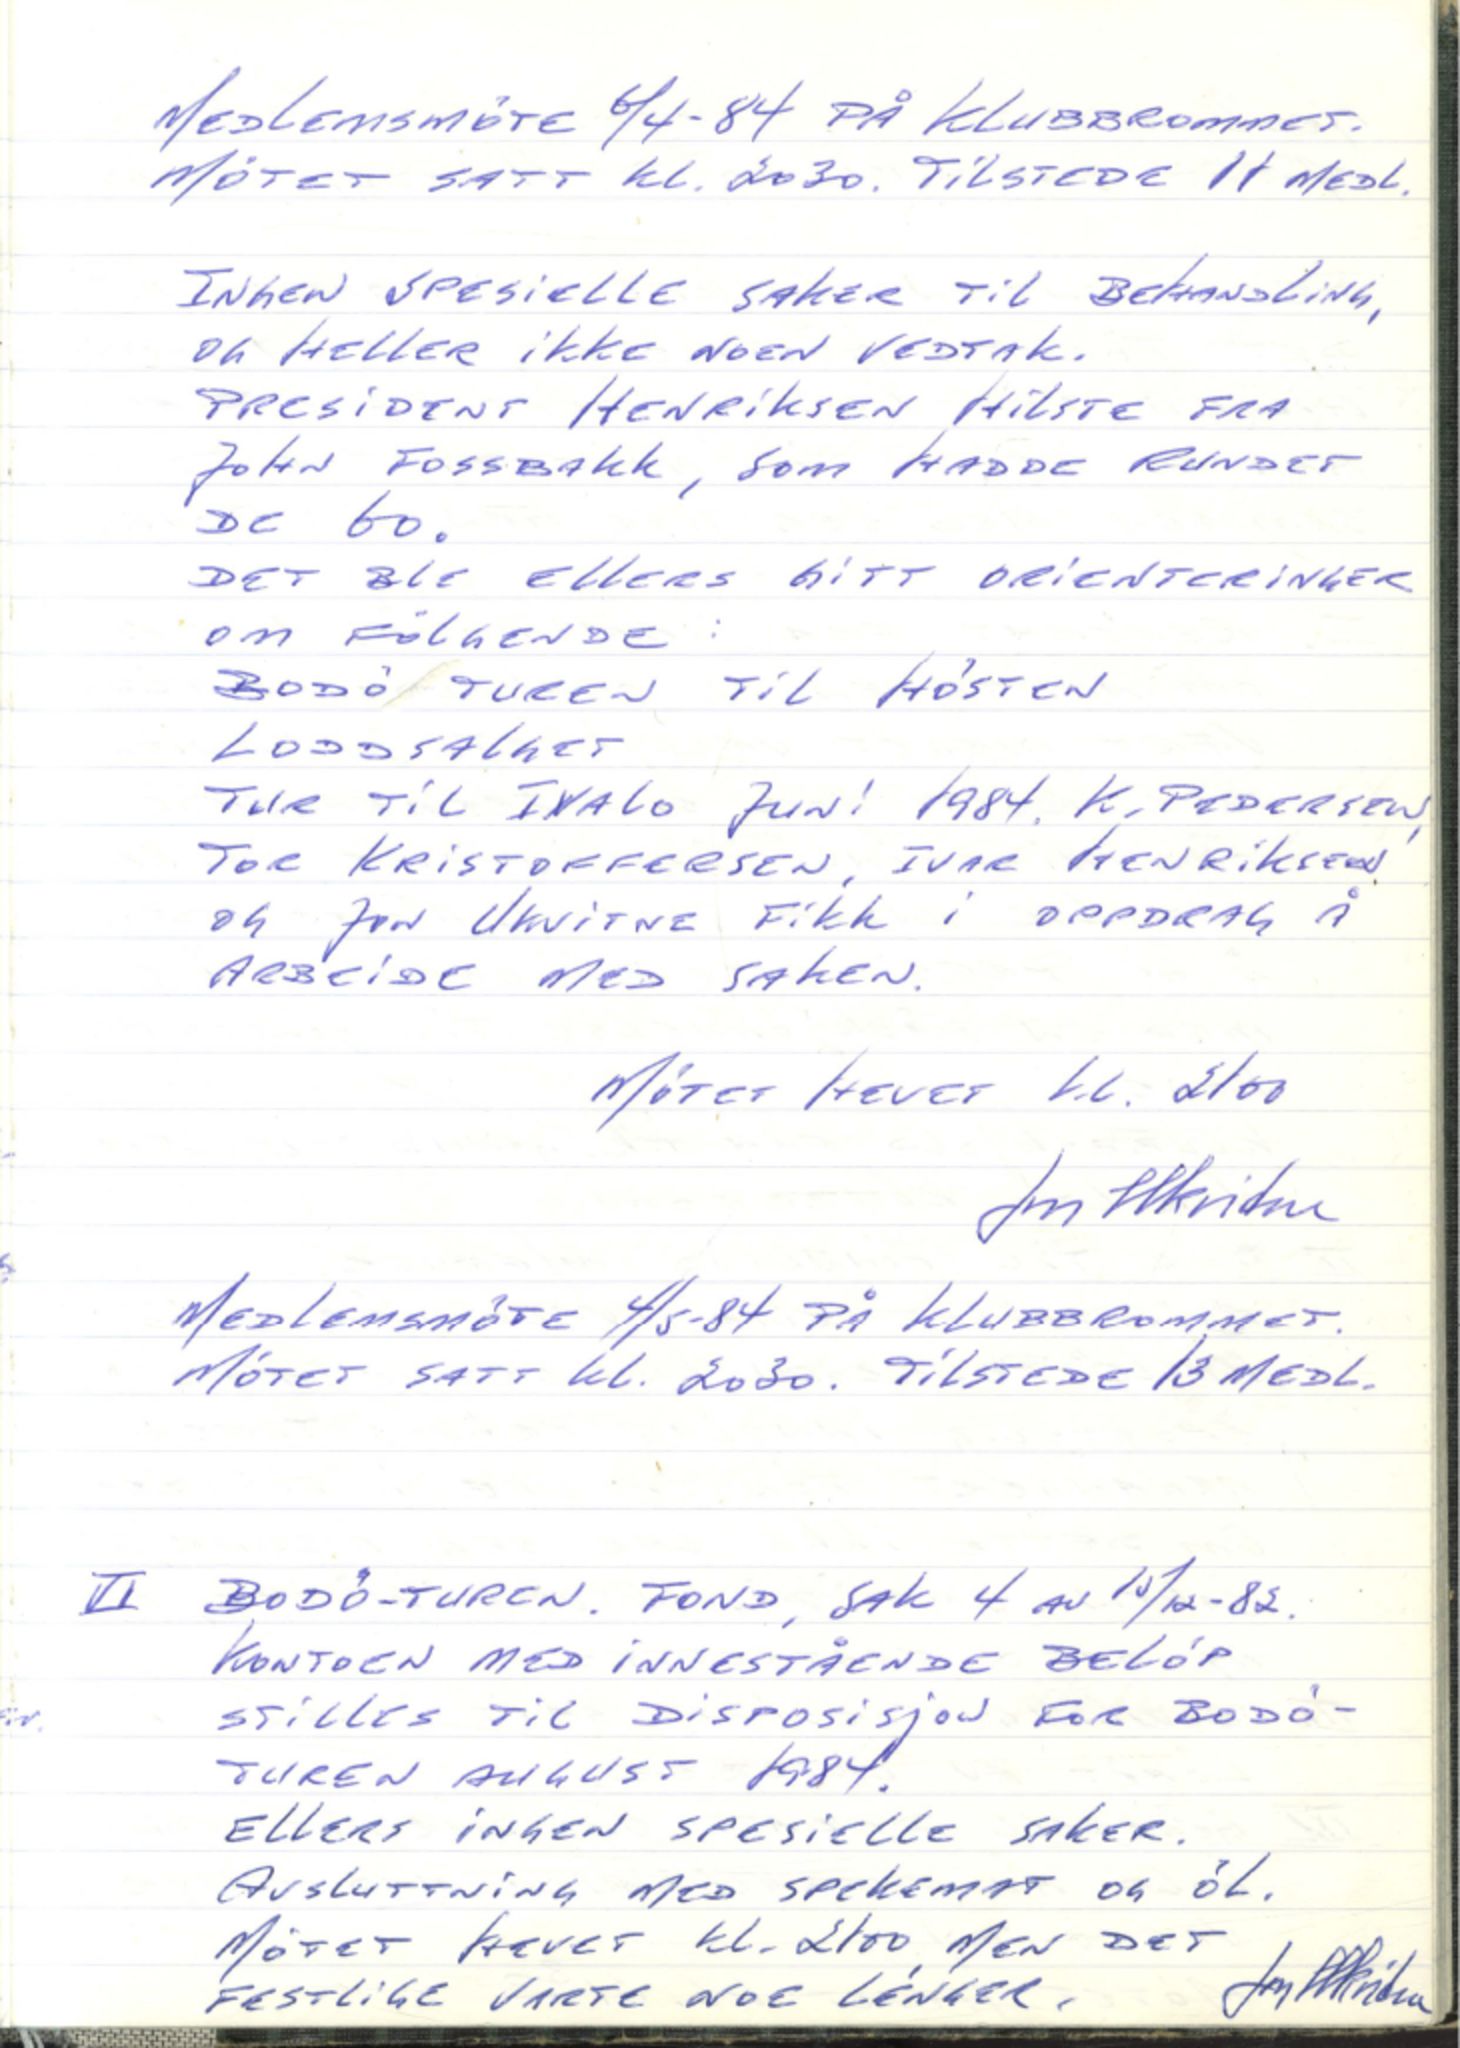 MEDLEMSMÖTE 6/4-84 PÅ KLUBBROMMET.
MÖTET SATT KL. 2030. TILSTEDE 11 MEDL.
INGEN SPESIELLE SAKER TIL BEHANDLING,
OG HELLER IKKE NOEN VEDTAK.
PRESIDENT HENRIKSEN HILSTE FRA
JOHN FOSSBAKK, SOM HADDE RUNDET
DE 60.
DET BLE ELLERS GITT ORIENTERINGER
OM FÖLGENDE:
BODÖ TUREN TIL HÖSTEN
LODDSALGET
TUR TIL IVALO JUNI 1984. K. PEDERSEN,
TOR KRISTOFFERSEN, IVAR HENRIKSEN
OG JON UKVITNE FIKK I OPPDRAG Å
ARBEIDE MED SAKEN.
MÖTET HEVET KL. 2100
Jon Ukvitne
MEDLEMSMÖTE 4/5-84 PÅ KLUBBROMMET.
MÖTET SATT KL. 2030. TILSTEDE 13 MEDL.
VI BODÖ-TUREN. FOND, SAK 4 AV 10/12-82.
KONTOEN MED INNESTÅENDE BELÖP
STILLES TIL DISPOSISJON FOR BODÖ-
TUREN AUGUST 1984.
ELLERS INGEN SPESIELLE SAKER.
AVSLUTTNING MED SPEKEMAT OG ÖL.
MÖTET HEVET KL. 2100, MEN DET
FESTLIGE VARTE NOE LENGER. Jon Ukvitne